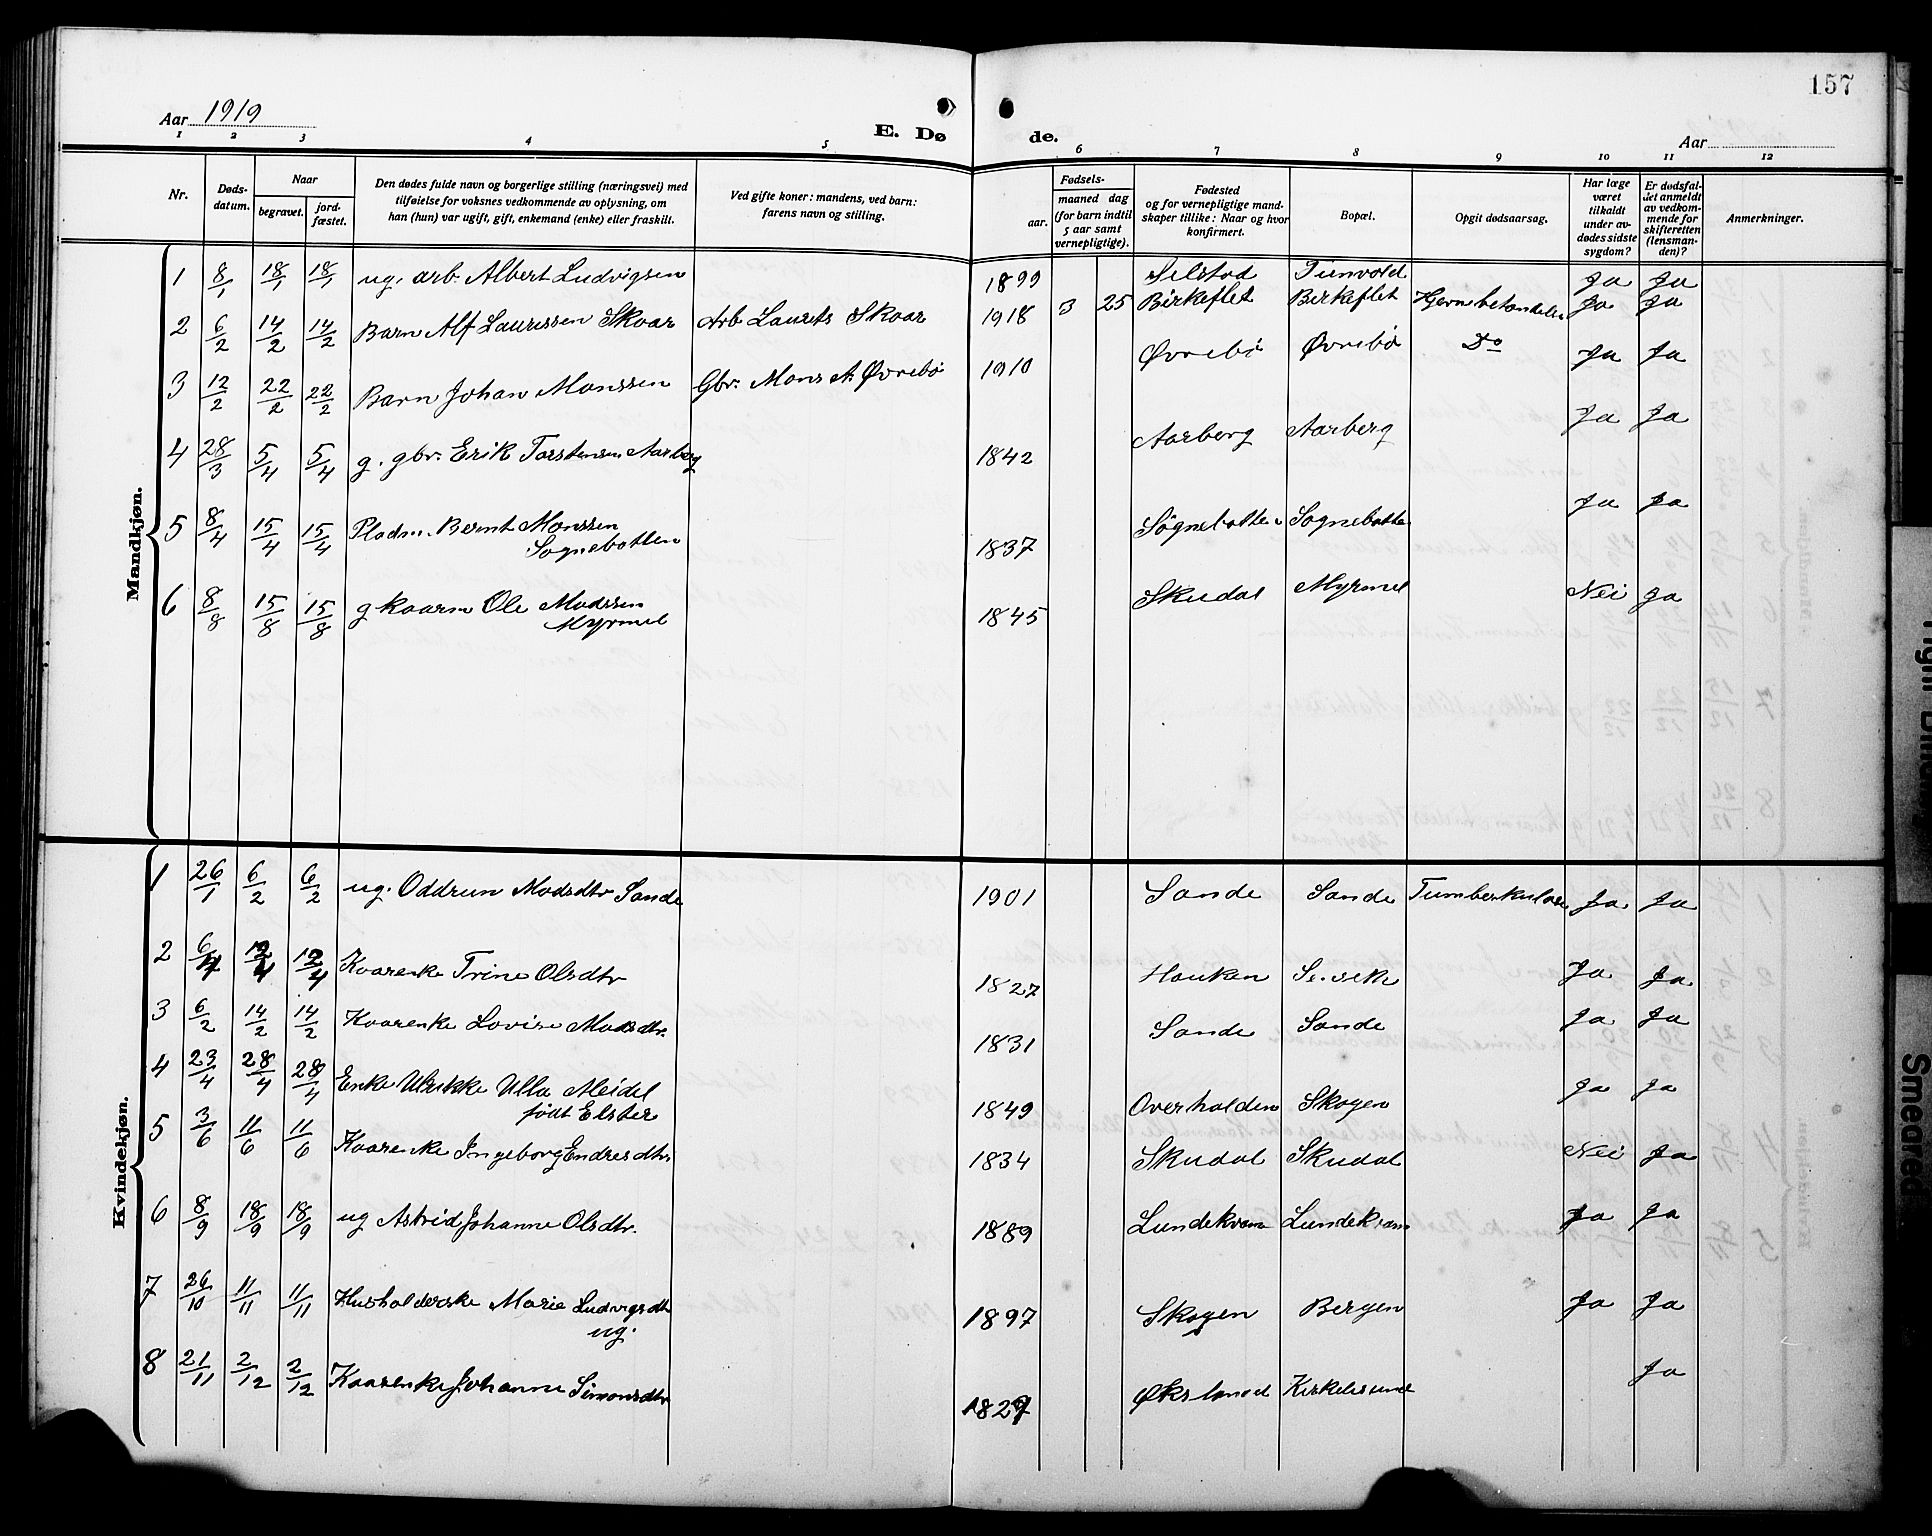 157
Aar 1919
E. Dø de.
Aar
1 2 3 4 5 6 7 8 9 10 11 12
Nr.
Døds-datum.
Naar
begravet.
jord-fæstet.
Den dødes fulde navn og borgerlige stilling (næringsvei) med
tilføielse for voksnes vedkommende av oplysning, om
han (hun) var ugift, gift, enkemand (enke) eller fraskilt.
Ved gifte koner: mandens, ved barn:
farens navn og stilling.
Fødsels-
aar.
maaned dag
(for barn indtil
5 aar samt
vernepligtige).
Fødested
og for vernepligtige mand-
skaper tillike: Naar og hvor
konfirmert.
Bopæl.
Opgit dødsaarsag.
Har læge
været
tilkaldt
under av-
dødes sidste
sygdom?
Er dødsfal-
det anmeldt
av vedkom-
mende for
skifteretten
(lensman-
den)?
Anmerkninger.
Mandkjøn.
1 8/1 18/1 18/1 ug. arb. Albert Ludvigsen 1899 Selstad Tunvold Ja Ja
2 6/2 14/2 14/2 Barn Alf Lauritssen Skaar Arb Laurits Skaar 1918 3 25 Birkeflet Birkeflet Hjernebetændelse Ja Ja
3 12/2 22/2 22/2 Barn Johan Monssen Gbr. Mons A. Øvrebø 1910 Øvrebø Øvrebø Do Ja Ja
4 28/3 5/4 5/4 g. gbr. Erik Torstensen Aarberg 1842 Aarberg Aarberg Ja Ja
5 8/4 15/4 15/4 Pladsm. Bernt Monssen
Sognebotten 1837 Sognebotten Sognebotten Ja Ja
6 8/8 15/8 15/8 g kaarm Ole Madssen
Myrmel 1845 Skudal Myrmel Nei Ja
Kvindekjøn.
1 26/1 6/2 6/2 ug. Oddrun Madsdtr Sande 1901 Sande Sande Tumberkulose Ja Ja
2 6/4 12/4 12/4 Kaarenke Trine Olsdtr 1827 Hauken Ja Ja
3 6/2 14/2 14/2 Kaarenke Lovise Madsdtr. 1831 Sande Sande Ja Ja
4 23/4 28/4 28/4 Enke Ulrikke Ulla Meidel
født Elster 1849 Overhalden Skogen Ja Ja
5 3/6 11/6 11/6 Kaarenke Ingeborg Endresdtr. 1834 Skudal Skudal Nei Ja
6 8/9 18/9 18/9 ug Astrid Johanne Olsdtr. 1889 Lundekvam Lundekvam Ja Ja
7 26/10 11/11 11/11 Husholderske Marie Ludvigsdtr
ug. 1897 Skogen Bergen Ja Ja
8 21/11 2/12 2/12 Kaarenke Johanne Simonsdtr 1827 Øksland Kirkelisund Ja
Tight Binding
Smeared